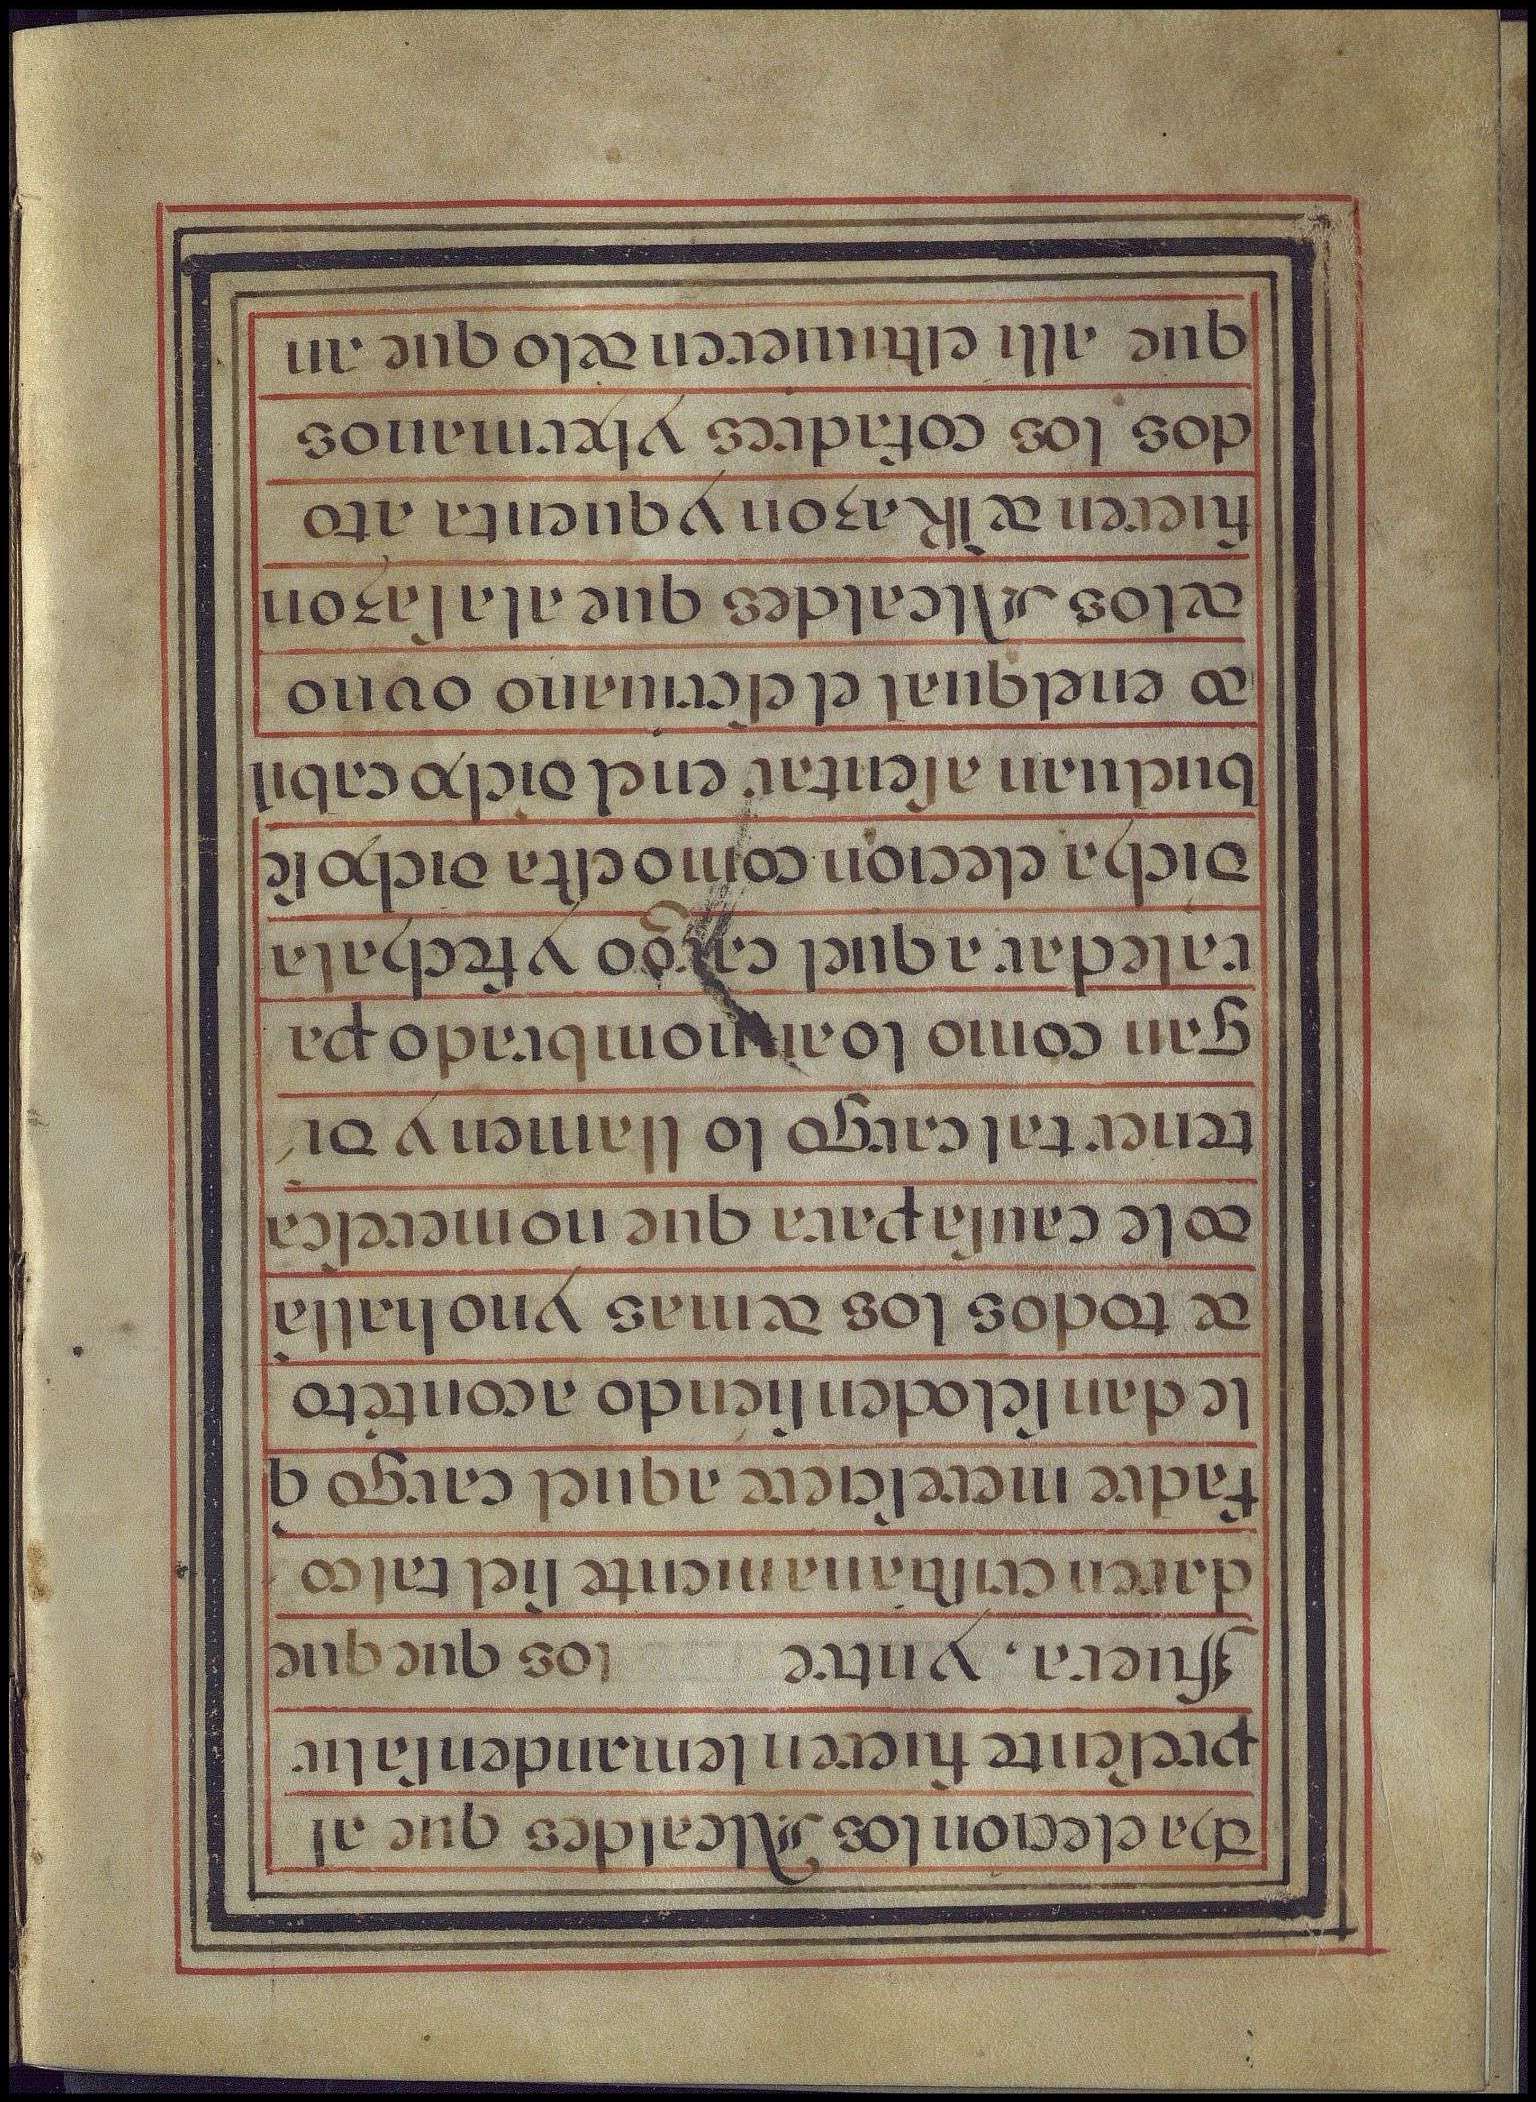 dha elecion los Alcaldes que al
presente fueren le manden salir
ffuera, y ntre los que que
daren cristianamente si el tal co
fadre meresciere aquel cargo q
le dan selo den siendo a contẽto
de todos los demas y no halla
do le causa para que no meresca
tener tal cargo lo llamen y di
gan como lo an nombrado pa
rale dar aquel cargo y fecha la
dicha elecion como esta dicho se
bueluan a sentar en el dicho cabil
do en el qual el escriuano o vno
de los Alcaldes que a la sazon
fueren de Razon y quenta a to
dos los cofadres y hermanos
que alli estuuieren de lo que an